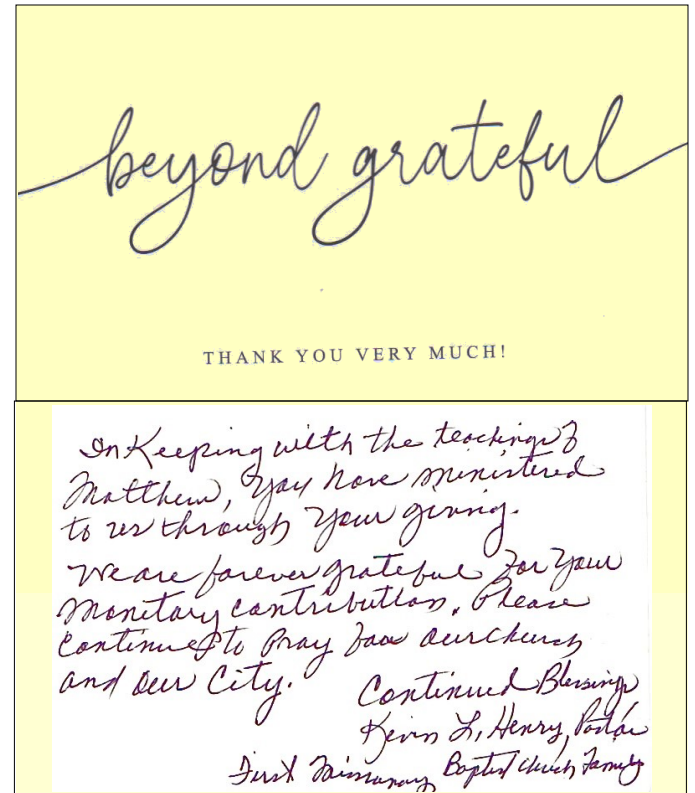 beyond grateful
THANK YOU VERY MUCH!
In Keeping with the teachings of
Matthew, you have ministered
to us through your giving.
We are forever grateful for your
monetary contribution. Please
continue to pray for our church
and our City.
Continued Blessings
Kevin L. Henry, Pastor
First Missionary Baptist Church Family